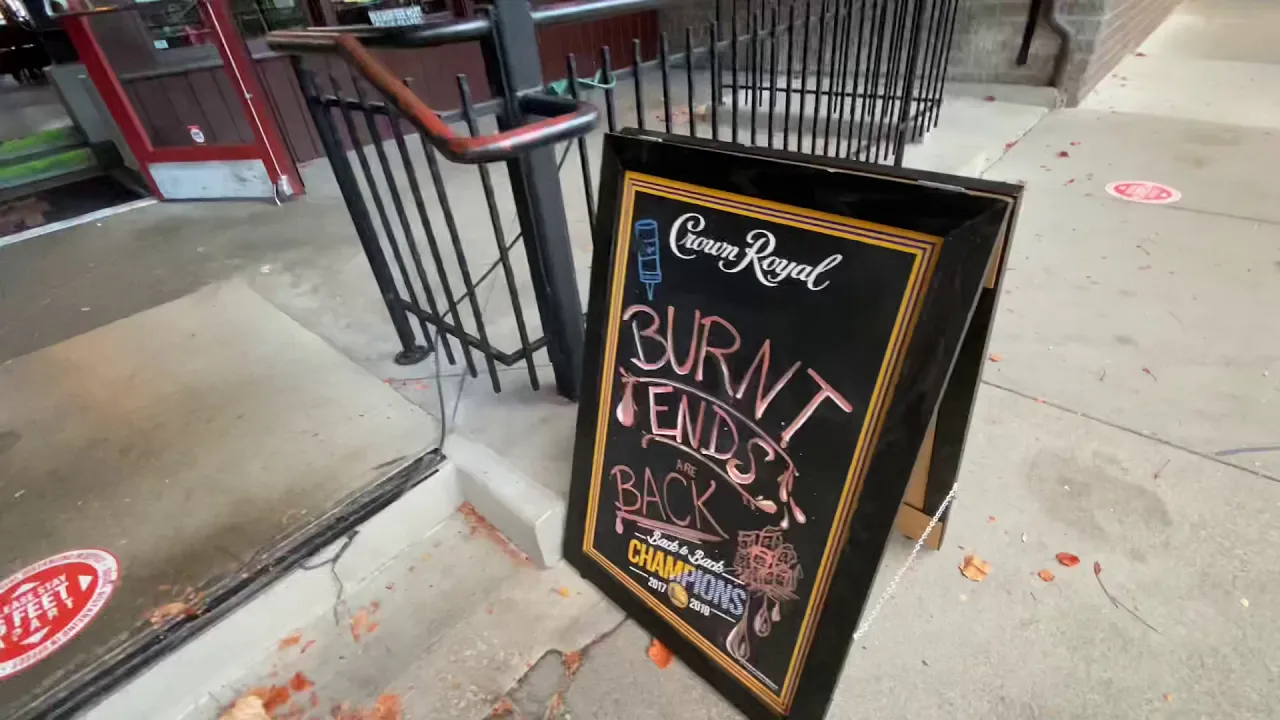 Crown Royal
BURNT
ENDS
ARE
BACK
Back to Back
CHAMPIONS
2017 2018
PLEASE STAY
6 FEET
APART